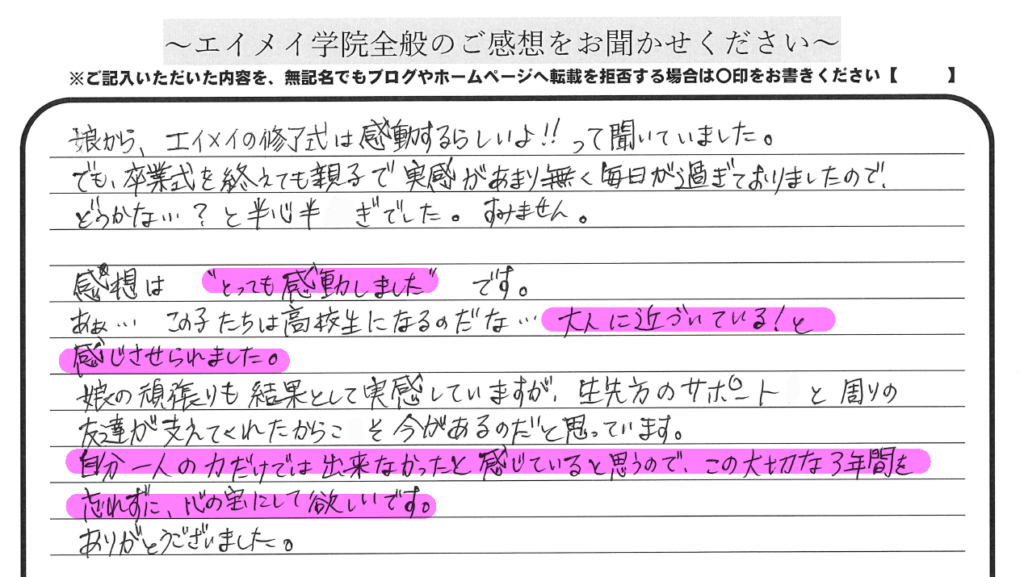 ～エイメイ学院全般のご感想をお聞かせください～
※ご記入いただいた内容を、無記名でもブログやホームページへ転載を拒否する場合は〇印をお書きください【　　】
娘から、エイメイの修了式は感動するらしいよ!!って聞いていました。
でも、卒業式を終えても親子で実感があまり無く毎日が過ぎておりましたので、
どうかない…？と半心半　ぎでした。すみません。
感想は　"とっても感動しました"　です。
あぁ…　この子たちは高校生になるのだな…大人に近づいている！と
感じさせられました。
娘の頑張りも結果として実感していますが、先生方のサポートと周りの
友達が支えてくれたからこそ今があるのだと思っています。
自分一人の力だけでは出来なかったと感じていると思うので、この大切な3年間を
忘れずに、心の宝にして欲しいです。
ありがとうございました。